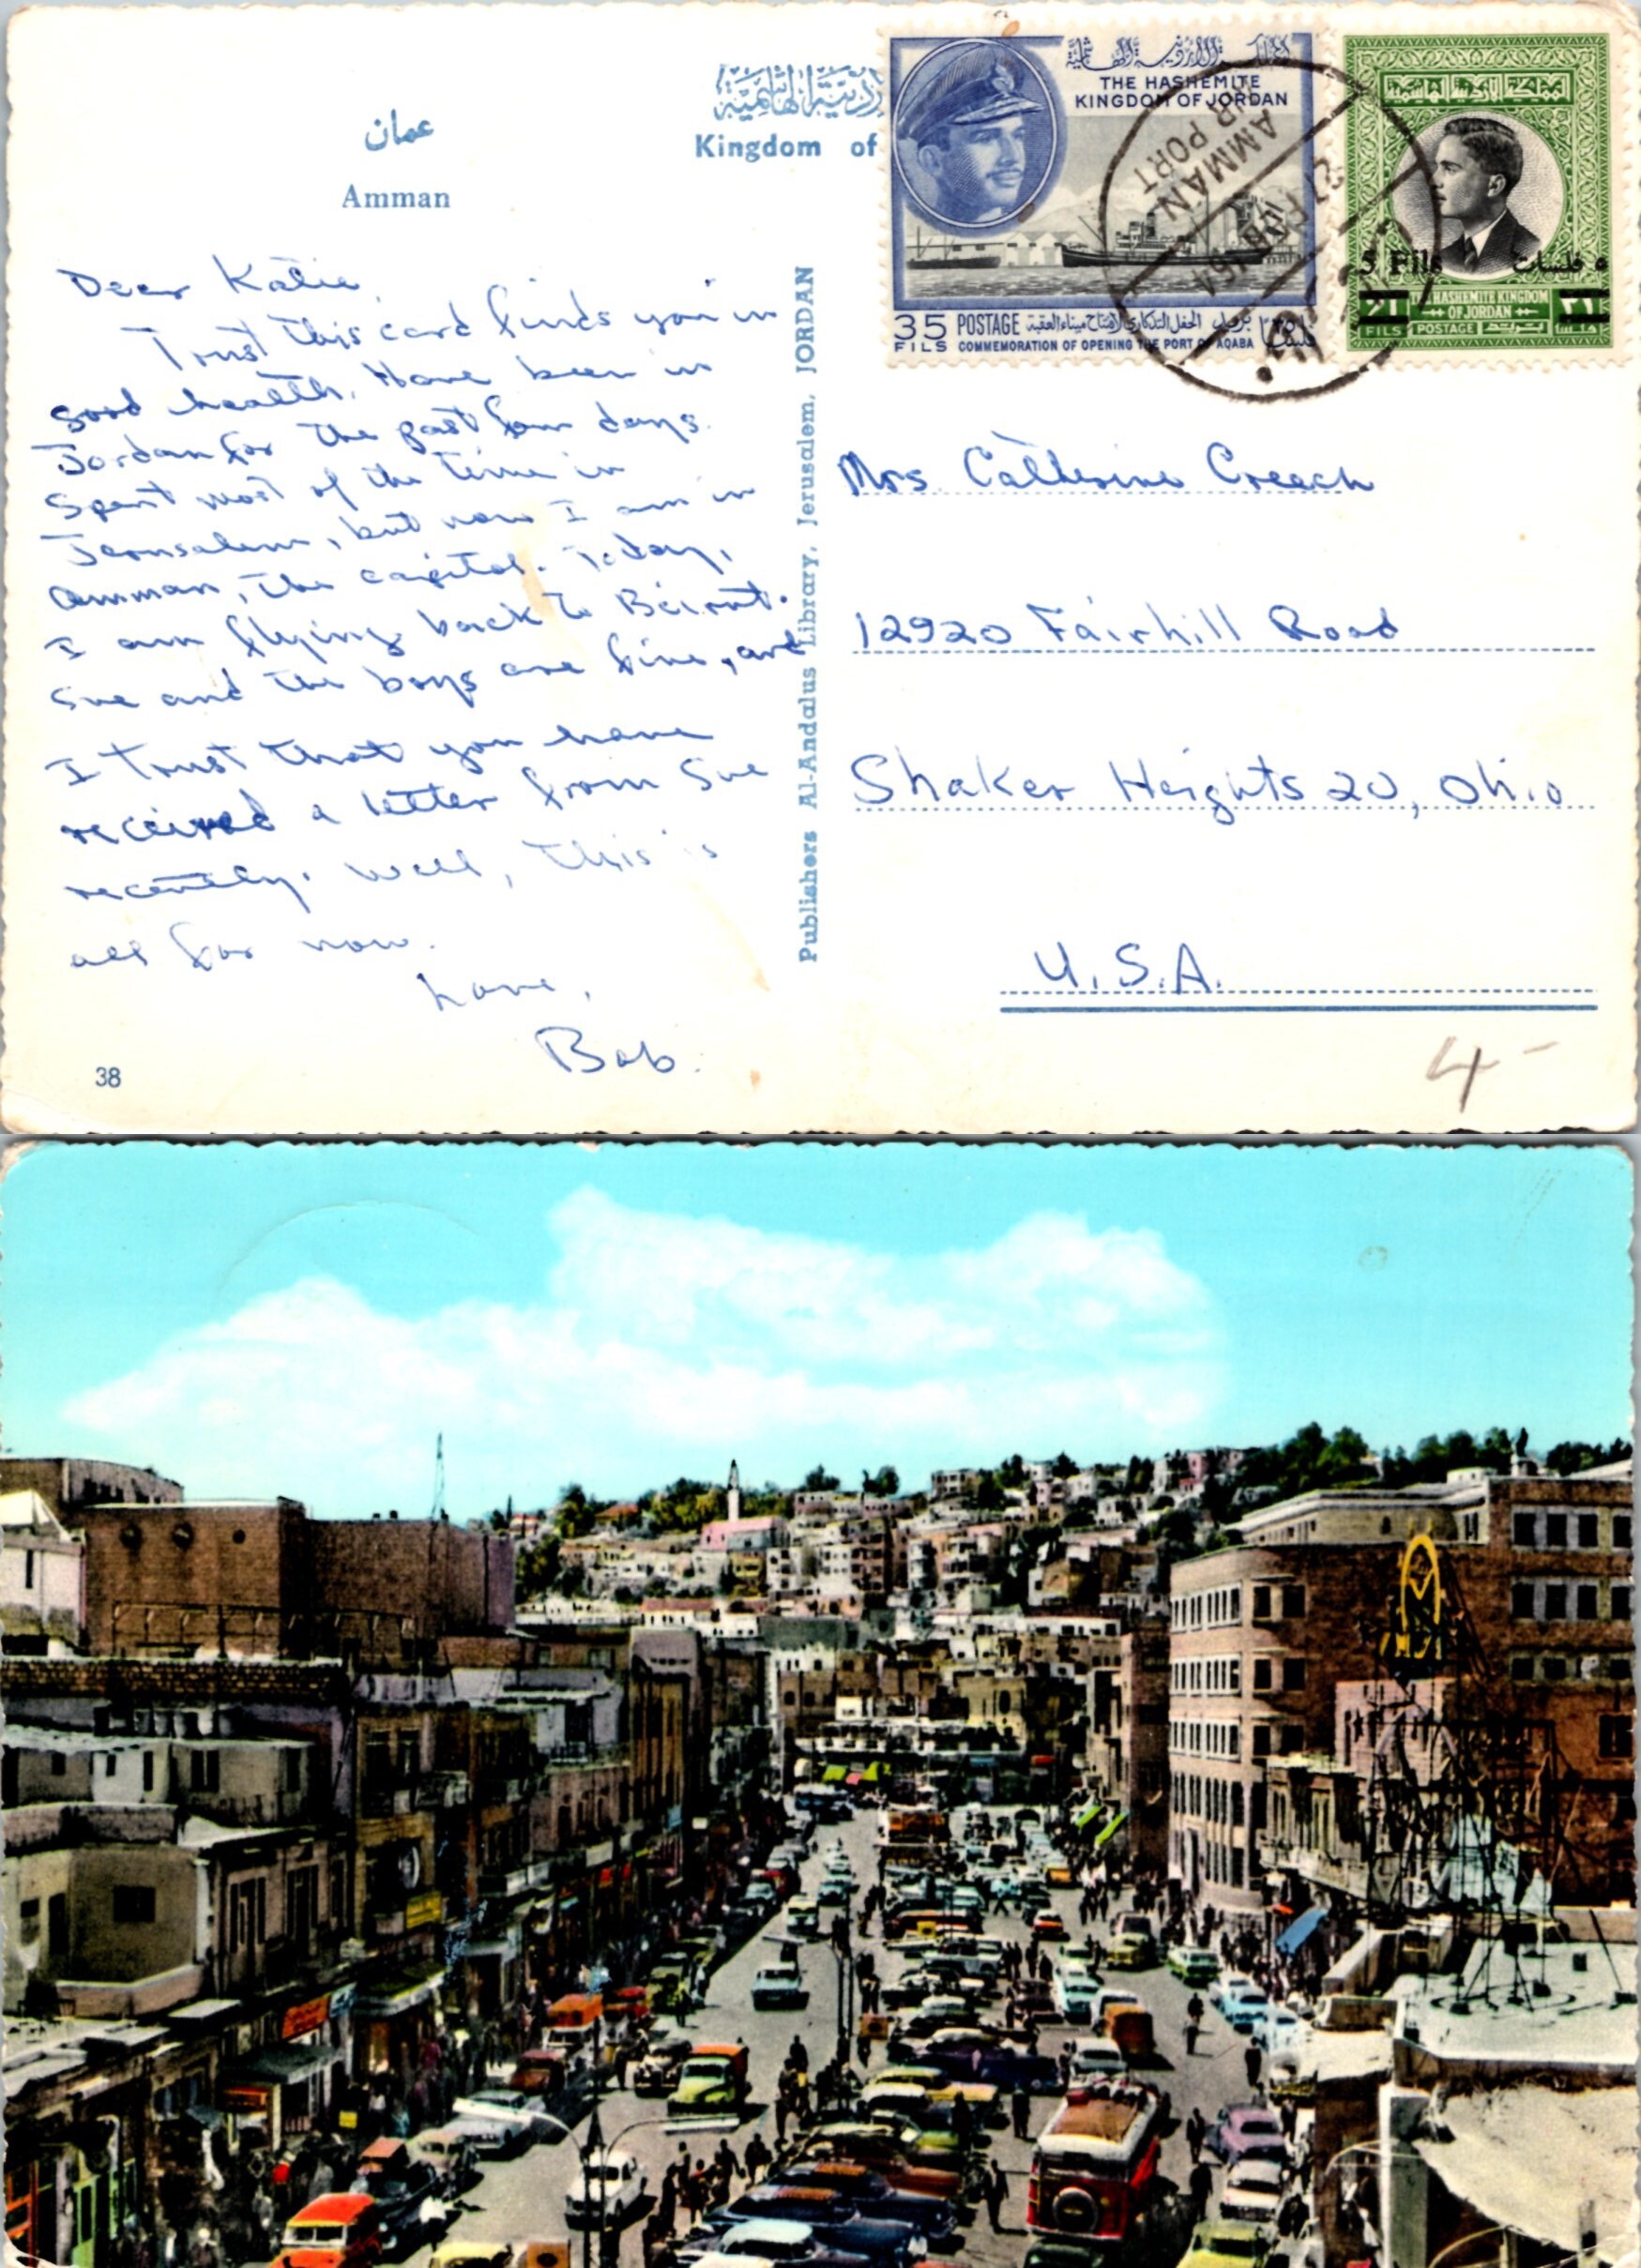 عمان
Amman
Kingdom of
THE HASHEMITE
KINGDOM OF JORDAN
35 POSTAGE
FILS COMMEMORATION OF OPENING THE PORT OF AQABA
AMMAN
AIR PORT
المملكة الاردنية الهاشمية
5 Fils ٥ فلسات
THE HASHEMITE KINGDOM
OF JORDAN
FILS POSTAGE
Dear Katie,
Trust this card finds you in
good health. Have been in
Jordan for the past few days.
Spent most of the time in
Jerusalem, but now I am in
Amman, the capitol. Today,
I am flying back to Beirut.
Sue and the boys are fine, and
I trust that you have
received a letter from Sue
recently. Well, this is
all for now.
Love,
Bob.
38
Publishers Al-Andalus Library, Jerusalem, JORDAN
Mrs. Catherine Creech
12920 Fairhill Road
Shaker Heights 20, Ohio
U.S.A.
4-